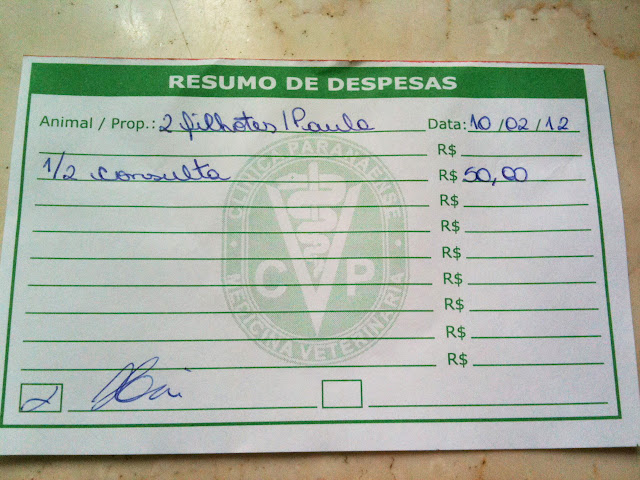 RESUMO DE DESPESAS
Animal / Prop.: 2 filhotes / Paula Data: 10 / 02 / 12
R$
1/2 consulta R$ 50,00
R$
R$
R$
R$
R$
R$
R$
CLÍNICA PARANAENSE
CVP
MEDICINA VETERINÁRIA